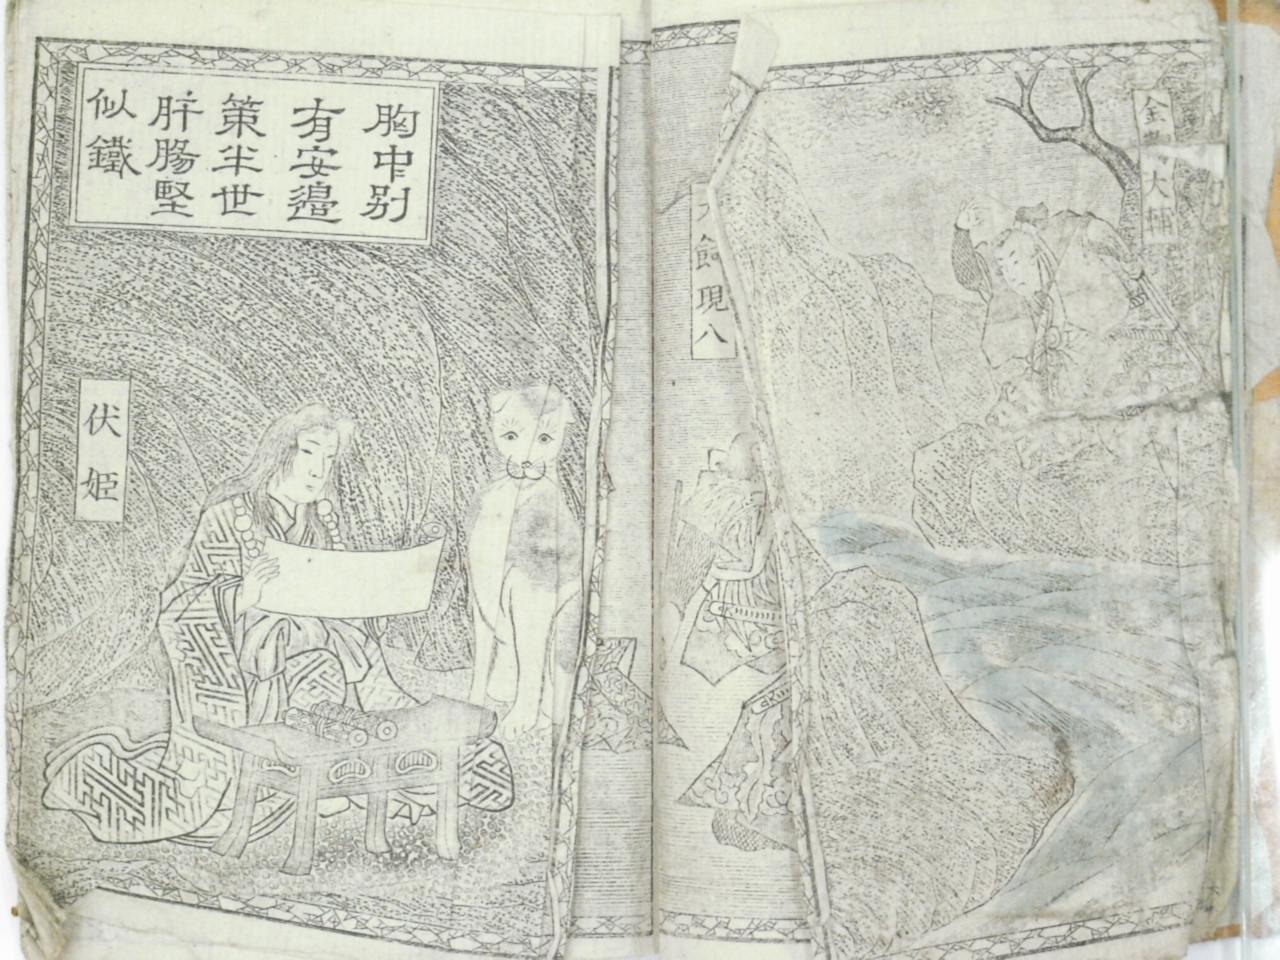 胸中別
有安邉
策半世
肝腸堅
似鐵
伏姫
飼現八
金
大輔